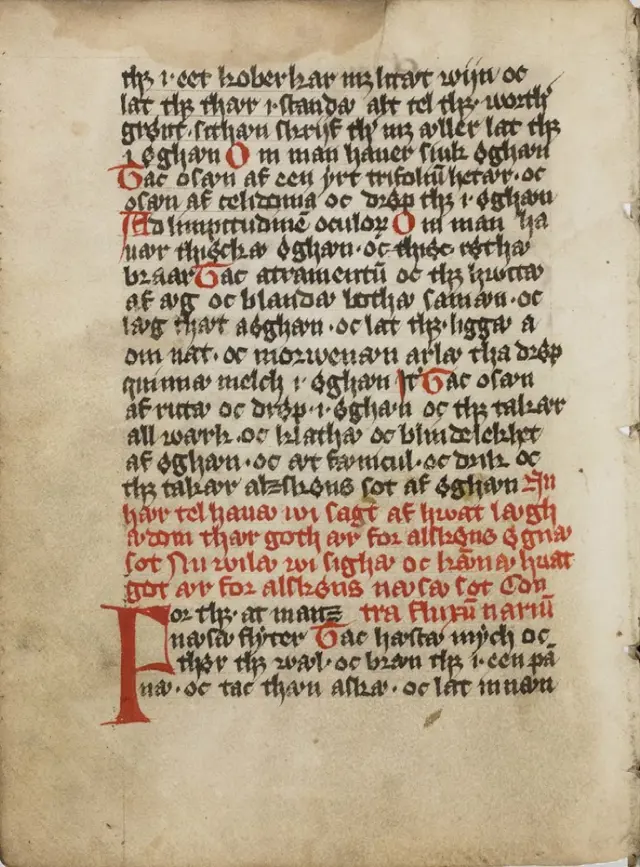 thꝫ i eet koberkar mꝫ litæt wijn oc
lat thꝫ thær i standæ alt tel thꝫ worthꝰ
grønt. sithæn skrijf thꝫ mꝫ aller lat thꝫ
i øghæn Om man hauer siuk øghæn
Tac osæn af een yrt trifoliū hetær. oc
osæn af celidonia oc drøp thꝫ i øghæn
Ad limpitudinē oculoꝝ Om man ha
uær thiockæ øghæn. oc thioc røthæ
braar Tac atramentū oc thꝫ hwitæ
af æg oc blandæ bothæ samæn. oc
læg thæt a øghæn. oc lat thꝫ. liggæ a
om nat. oc morwenæn arlæ tha drøp
quinnæ melch i øghæn Jt Tac osæn
af rutæ oc drøp. i. øghæn oc thꝫ takær
all wærk. oc klathæ oc blindelekhet
af øghæn. oc æt fænicul. oc drik oc
thꝫ takær alzskøns sot af øghæn Nu
hær tel hauæ wi sagt af hwat lægh
ædom thær goth ær for alskøns øgnæ
sot Nu wilæ wi sighæ oc kænnæ huat
got ær for alskøns næsæ sot Con
For thꝫ. at manz tra fluxū nariū
næsæ flyter Tac hæstæ mych oc
thør thꝫ wæl. oc bræn thꝫ i een pā
næ. oc tac thæn askæ. oc lat innæn